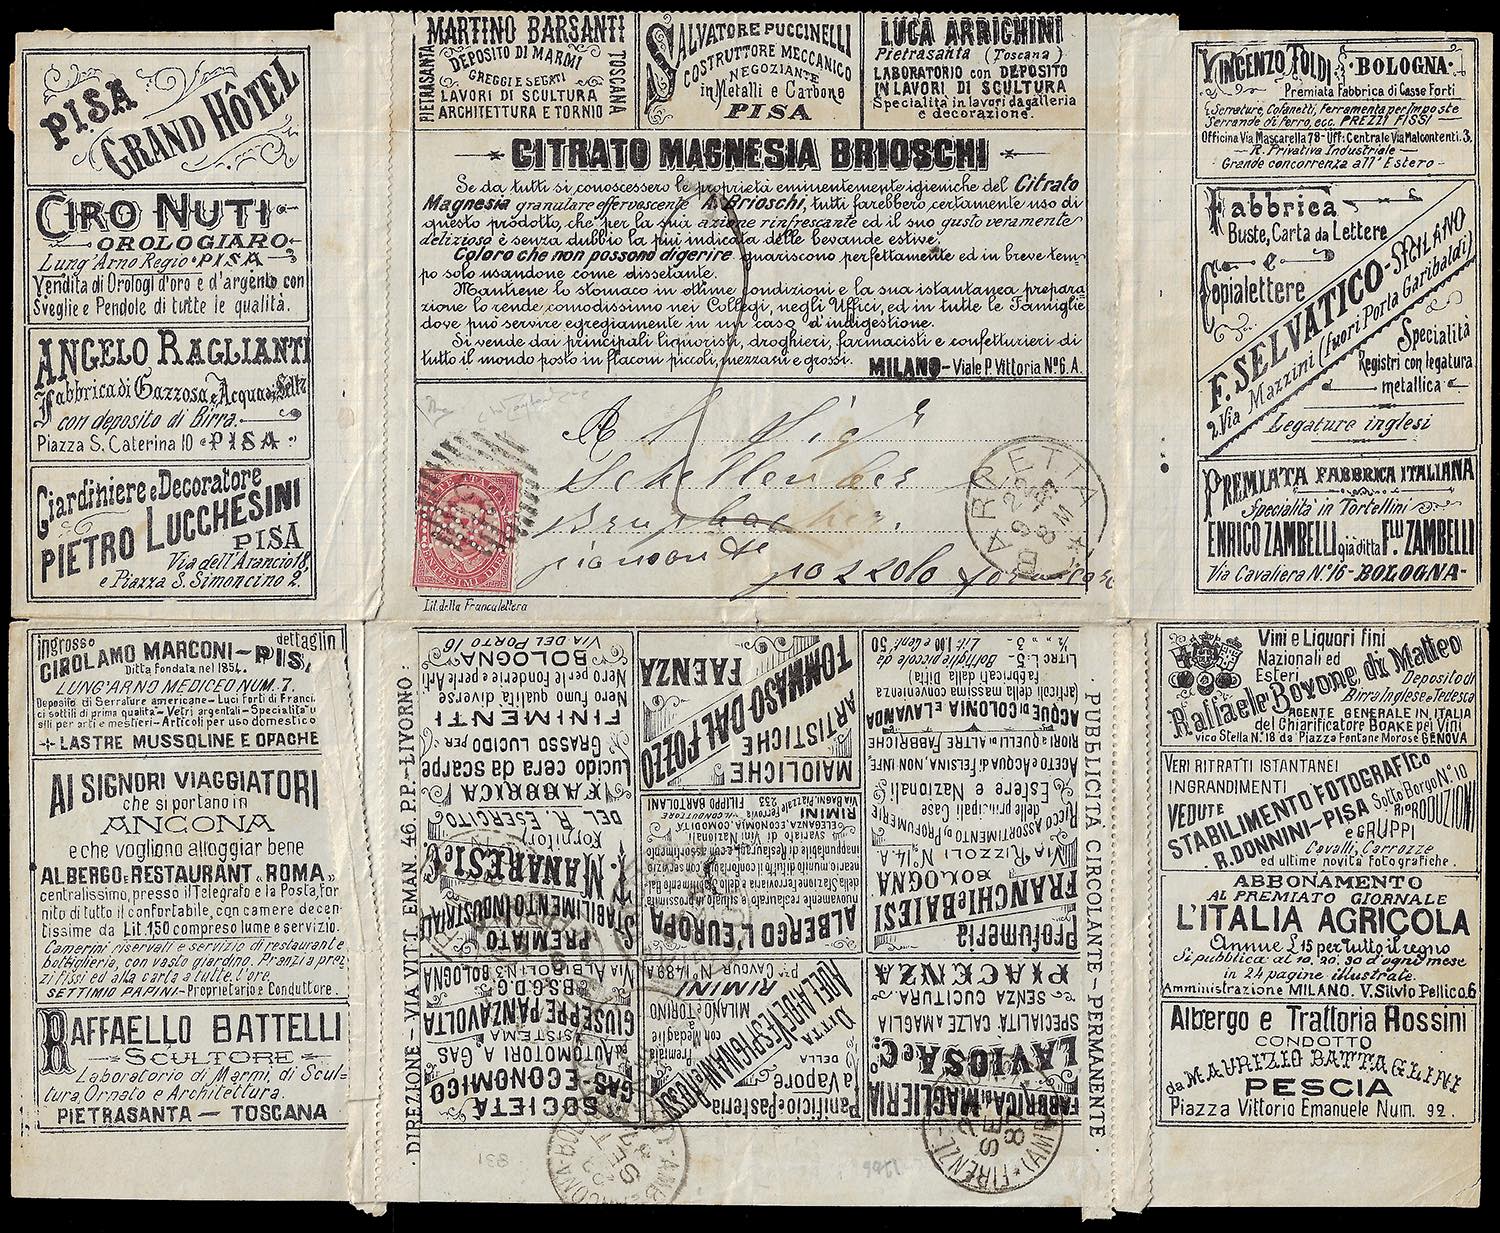 PISA
GRAND HÔTEL
CIRO NUTI
OROLOGIARO
Lung'Arno Regio - PISA
Vendita di Orologi d'oro e d'argento con
Sveglie e Pendole di tutte le qualità.
ANGELO RAGLIANTI
Fabbrica di Gazzosa e Acqua di Seltz
con deposito di Birra.
Piazza S. Caterina 10 PISA
Giardiniere e Decoratore
PIETRO LUCCHESINI
PISA
Via dell'Arancio 18,
e Piazza S. Simoncino 2.
MARTINO BARSANTI
DEPOSITO DI MARMI
GREGGI E SEGATI
LAVORI DI SCULTURA
ARCHITETTURA E TORNIO
PIETRASANTA
TOSCANA
SALVATORE PUCCINELLI
COSTRUTTORE MECCANICO
NEGOZIANTE
in Metalli e Carbone
PISA
LUCA ARRIGHINI
Pietrasanta (Toscana)
LABORATORIO con DEPOSITO
IN LAVORI DI SCULTURA
Specialità in lavori da galleria
e decorazione.
CITRATO MAGNESIA BRIOSCHI
Se da tutti si conoscessero le proprietà eminentemente igieniche del Citrato
Magnesia granulare effervescente A. Brioschi, tutti farebbero certamente uso di
questo prodotto, che per la sua azione rinfrescante ed il suo gusto veramente
delizioso è senza dubbio la più indicata delle bevande estive.
Coloro che non possono digerire guariscono perfettamente ed in breve tem-
po solo usandone come dissetante.
Mantiene lo stomaco in ottime condizioni e la sua istantanea prepara-
zione lo rende comodissimo nei Collegi, negli Uffici, ed in tutte le Famiglie
dove può servire egregiamente in un caso d'indigestione.
Si vende dai principali liquoristi, droghieri, farmacisti e confetturieri di
tutto il mondo posto in flaconi piccoli, mezzani e grossi.
MILANO - Viale P. Vittoria No 6. A.
BARETTA
9 22
8 M
Lit. della Francalettera
VINCENZO TOLDI · BOLOGNA ·
Premiata Fabbrica di Casse Forti
Serrature, Cofanetti, Ferramenta per Imposte
Serrande di Ferro, ecc. PREZZI FISSI
Officina Via Mascarella 78 - Uff: Centrale Via Malcontenti. 3.
R. Privativa Industriale
Grande concorrenza all'Estero
Fabbrica
Buste, Carta da Lettere
e
Copialettere
F. SELVATICO - MILANO
2. Via Mazzini (fuori Porta Garibaldi)
Specialità
Registri con legatura
metallica
Legature inglesi
PREMIATA FABBRICA ITALIANA
Specialità in Tortellini
ENRICO ZAMBELLI già ditta Flli ZAMBELLI
Via Cavaliera N.16 - BOLOGNA -
ingrosso dettaglio
GIROLAMO MARCONI - PISA
Ditta Fondata nel 1854.
LUNG'ARNO MEDICEO NUM. 7.
Deposito di Serrature americane - Luci forti di Franci
ci sottili di prima qualità - Vetri argentali - Specialità u
sili per arti e mestieri - Articoli per uso domestico
LASTRE MUSSOLINE E OPACHE
AI SIGNORI VIAGGIATORI
che si portano in
ANCONA
e che vogliono alloggiar bene
ALBERGO e RESTAURANT "ROMA"
centralissimo, presso il Telegrafo e la Posta, for
nito di tutto il confortabile, con camere decen-
tissime da Lit. 1.50 compreso lume e servizio.
Camerini riservati e servizio di restaurant e
bottiglieria, con vasto giardino. Pranzi a prez
zi fissi ed alla carta a tutte l'ore.
SETTIMIO PAPINI - Proprietario e Conduttore.
RAFFAELLO BATTELLI
SCULTORE
Laboratorio di Marmi, di Scul-
tura, Ornato e Architettura.
PIETRASANTA - TOSCANA
· DIREZIONE - VIA VITT. EMAN. 46. P.P. - LIVORNO ·
SOCIETÀ
GAS-ECONOMICO
ed AUTOMOTORI A GAS
SISTEMA
GIUSEPPE PANZAVOLTA
B.S.G.D.G.
VIA ALBIROLI N.3 BOLOGNA
PREMIATO
STABILIMENTO INDUSTRIALE
T. MANARESI e C.
Fornitori
DEL R. ESERCITO
FABBRICA
Lucido cera da scarpe
GRASSO LUCIDO PER
FINIMENTI
Nero fumo qualità diverse,
Nero per le fonderie e per le Arti
BOLOGNA
VIA DEL PORTO 16
Panificio e Pasteria
a Vapore
DELLA
DITTA
ADELAIDE VESPIGNANI e ROSSI
Premiata
con Medaglie
a
MILANO e TORINO
RIMINI
pza CAVOUR No 1489A
ALBERGO L'EUROPA
nuovamente restaurato e situato in prossimità
della Stazione ferroviaria e dello Stabilimento Bal-
neario, munito di tutto il confortabile con servizio
inappuntabile di Restaurant e scelto assortimento
Svariato di Vini Nazionali
-ELEGANZA, ECONOMIA, COMODITÀ
RIMINI Ferrovia IL CONDUTTORE
Via Bagni, Piazzale 233 FILIPPO BARTOLANI
MAIOLICHE
ARTISTICHE
TOMMASO DAL POZZO
FAENZA
FABBRICA di MAGLIERIA
LAVIOSA e C.
SPECIALITÀ CALZE A MAGLIA
SENZA CUCITURA
PIACENZA
Profumeria
FRANCHI e BAIESI
BOLOGNA
VIA RIZZOLI No 14.A.
RICCO ASSORTIMENTO DI PROFUMERIE
delle principali Case
Estere e Nazionali
ACETO e ACQUA DI FELSINA, NON INFE-
RIORI A QUELLI DI ALTRE FABBRICHE
ACQUE DI COLONIA E LAVANDA
(articoli della massima convenienza
fabbricati dalla Ditta)
LITRO L: 5 - Bottiglie piccole da
½ " 3 - Lit: 1.00 e Cent: 50
PUBBLICITÀ CIRCOLANTE - PERMANENTE ·
Vini e Liquori fini
Nazionali ed
Esteri
Raffaele Bovone di Matteo
Deposito di
Birra Inglese e Tedesca
AGENTE GENERALE IN ITALIA
del Chiarificatore BOAKE pel Vini
vico Stella N.18 da Piazza Fontane Morose GENOVA
VERI RITRATTI ISTANTANEI
INGRANDIMENTI
VEDUTE
STABILIMENTO FOTOGRAFICO
R. DONNINI - PISA Sotto Borgo No 10
RIPRODUZIONI
e GRUPPI
Cavalli, Carrozze
ed ultime novità fotografiche.
ABBONAMENTO
AL PREMIATO GIORNALE
L'ITALIA AGRICOLA
Annue L.15 per tutto il regno
Si pubblica al 10. 20. 30 d'ogni mese
in 24 pagine illustrate
Amministrazione MILANO. V. Silvio Pellico. 6
Albergo e Trattoria Rossini
CONDOTTO
da MAURIZIO BATTAGLINI
PESCIA
Piazza Vittorio Emanuele Num. 92.